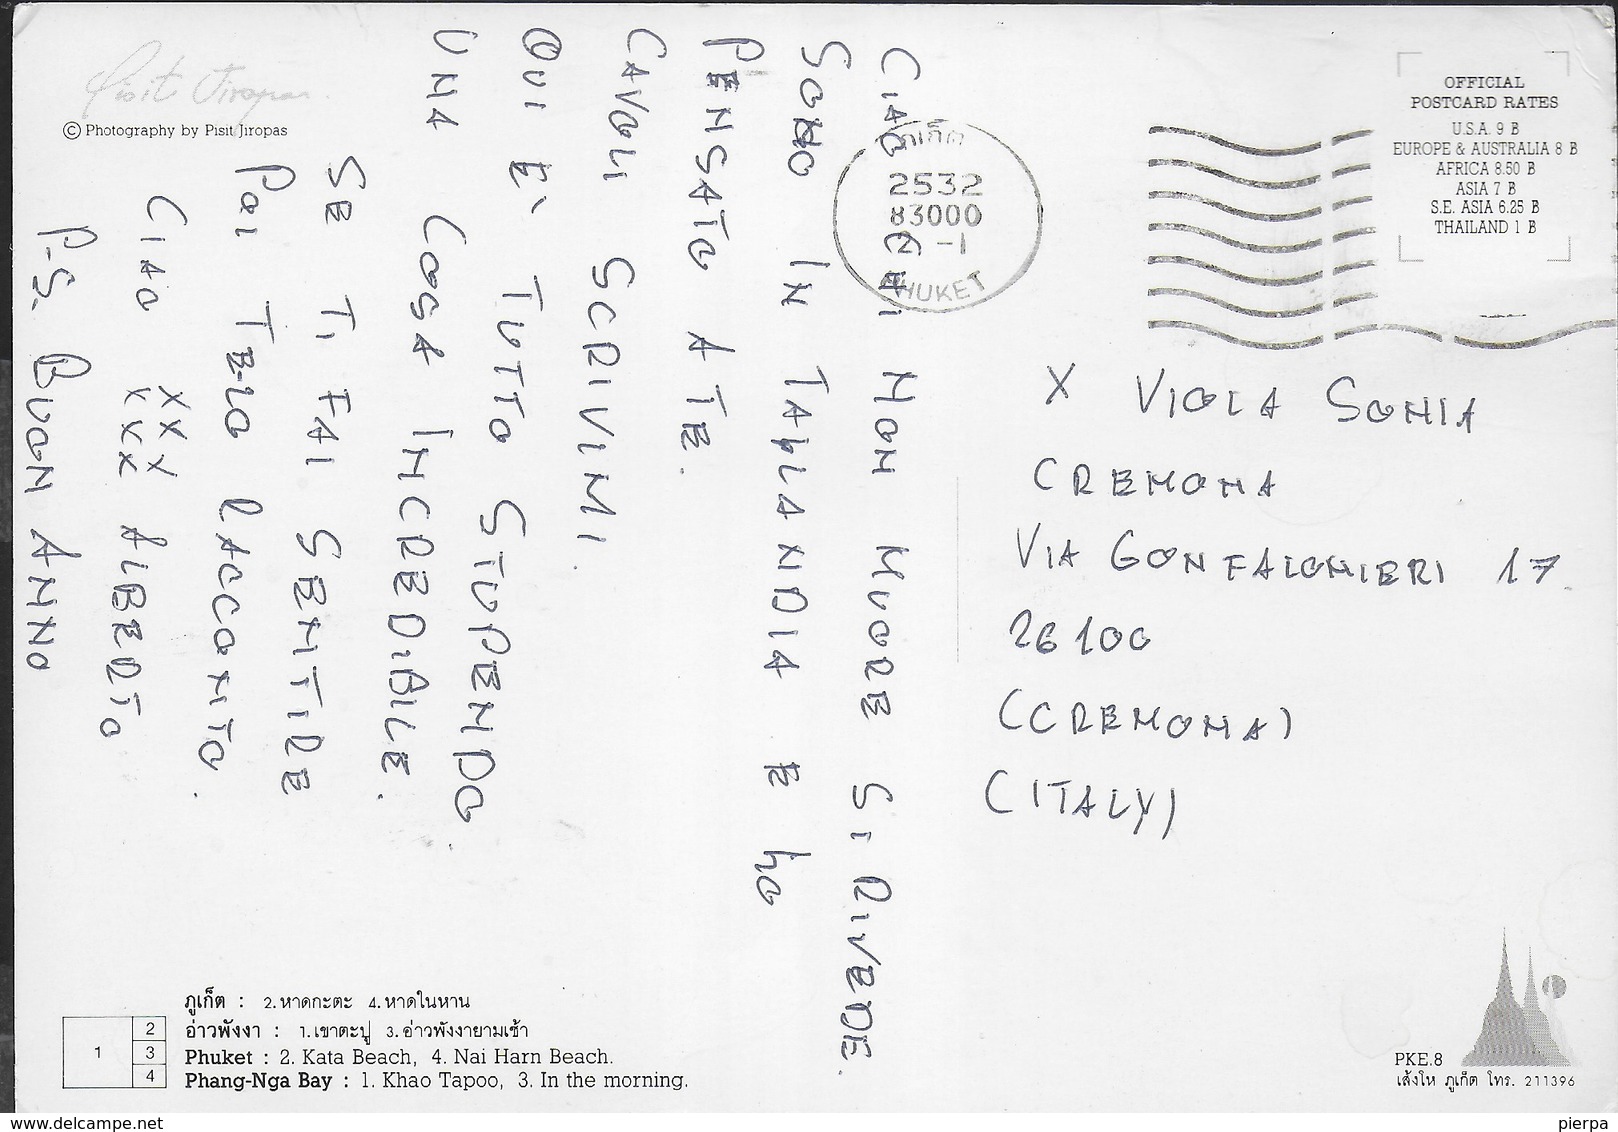 Pisit Jiropas
© Photography by Pisit Jiropas
OFFICIAL
POSTCARD RATES
U.S.A. 9 B
EUROPE & AUSTRALIA 8 B
AFRICA 8.50 B
ASIA 7 B
S.E. ASIA 6.25 B
THAILAND 1 B
ภูเก็ต
2532
83000
-1
PHUKET
CIAO CHI NON MUORE SI RIVEDE.
SONO IN TAILANDIA E HO
PENSATO A TE.
CAVOLI SCRIVIMI.
QUI E' TUTTO STUPENDO
UNA COSA INCREDIBILE.
SE TI FAI SENTIRE
POI TE LO RACCONTO.
CIAO XXX ALBERTO
XXX
P.S. BUON ANNO
X VIOLA SONIA
CREMONA
VIA GONFALONIERI 17
26100
(CREMONA)
(ITALY)
ภูเก็ต : 2.หาดกะตะ 4.หาดในหาน
อ่าวพังงา : 1.เขาตะปู 3.อ่าวพังงายามเช้า
Phuket : 2. Kata Beach, 4. Nai Harn Beach.
Phang-Nga Bay : 1. Khao Tapoo, 3. In the morning.
1
2
3
4
PKE.8
เส้งโห ภูเก็ต โทร. 211396
www.delcampe.net
pierpa